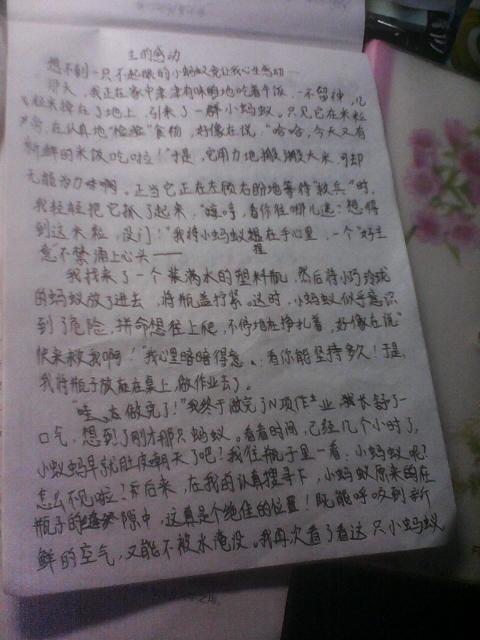 生的感动
想不到一只不起眼的小蚂蚁竟让我心生感动——
那天，我正在家中津津有味地吃着午饭，一不留神，几
粒米掉在了地上，引来了一群小蚂蚁。只见它在米粒
旁，在认真地“检验”食物，好像在说，“哈哈，今天又有
新鲜的米饭吃啦！”于是，它用力地搬搬大米，可却
无能为力啊。正当它正在左顾右盼地等待“救兵”时，
我轻轻把它抓了起来，“哼哼，看你往哪儿逃？想得
到这米粒，没门！”我将小蚂蚁握在手心里，一个“好主
意”不禁涌上心头——
我找来了一个装满水的塑料瓶，然后将小巧玲珑
的蚂蚁放了进去，将瓶盖拧紧。这时，小蚂蚁似乎意识
到了危险，拼命想往上爬，不停地在挣扎着，好像在说“
快来救我啊！”我心里暗暗得意，看你能坚持多久！于是，
我将瓶子放在桌上，做作业去了。
“哇，太做完了！”我终于做完了N项作业，我长舒了一
口气，想到了刚才那只蚂蚁。看看时间，已经几个小时了，
小蚁蚂早就肚皮朝天了吧！我往瓶子里一看：小蚂蚁呢？
怎么不见啦！后来，在我的认真搜寻下，小蚂蚁原来躲在
瓶子的缝隙中，这真是个绝佳的位置！既能呼吸到新
鲜的空气，又能不被水淹没。我再次看了看这只小蚂蚁